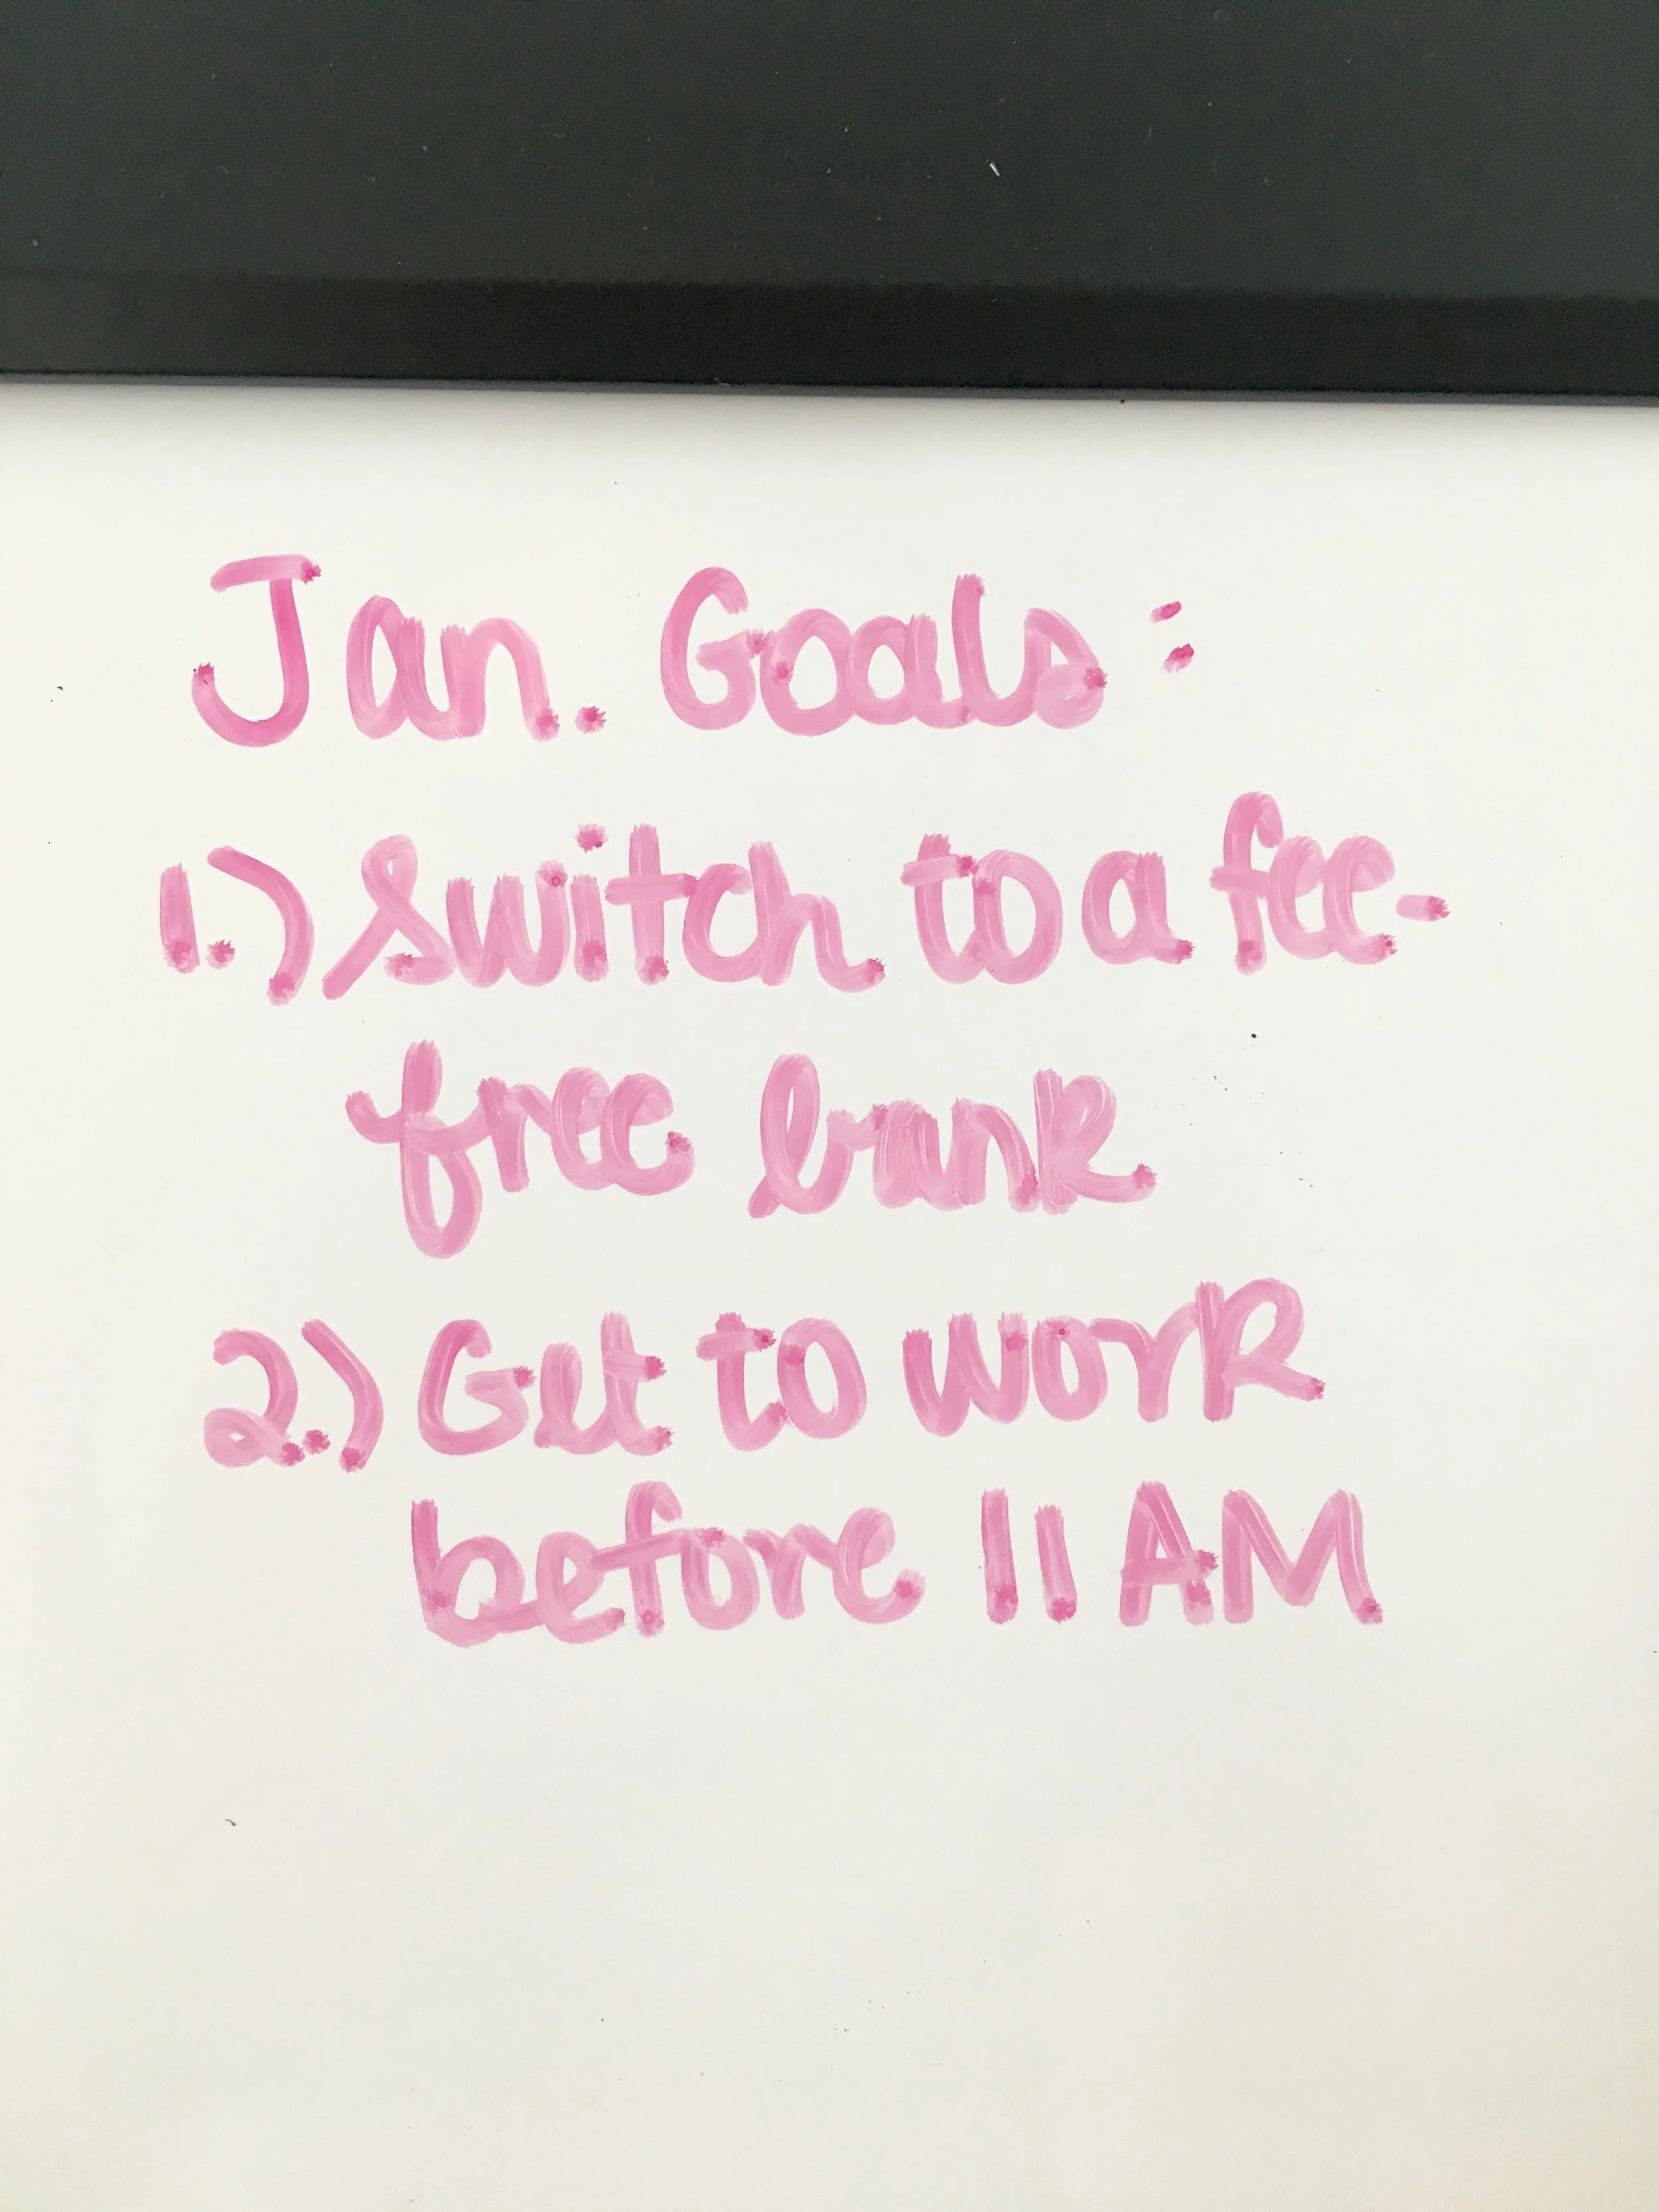 Jan. Goals:
1.) Switch to a fee-
free bank
2.) Get to work
before 11 AM